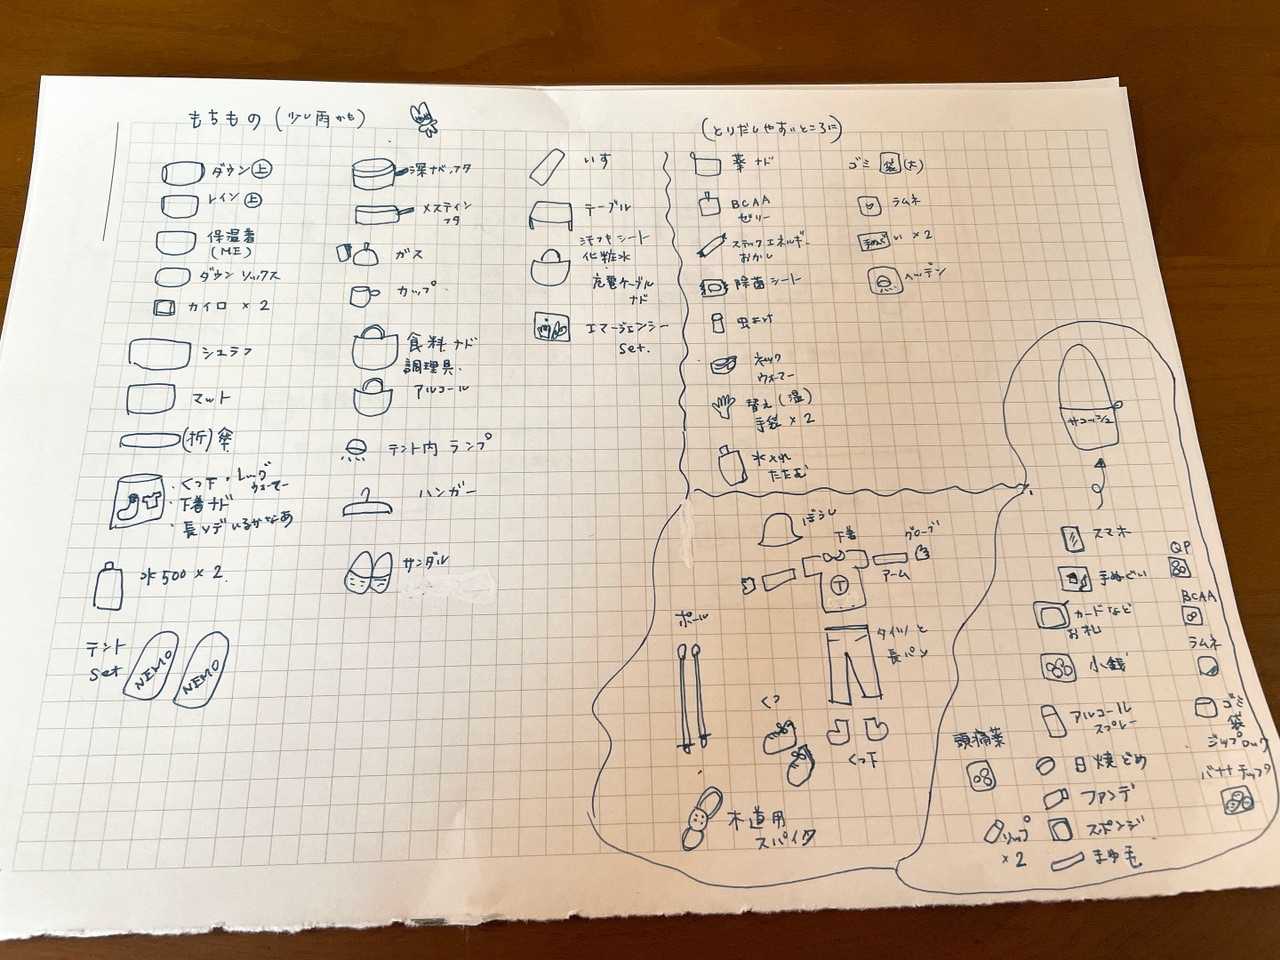 もちもの (少し雨かも)
ダウン 上
レイン 上
保温着
(ME)
ダウンソックス
カイロ × 2
シュラフ
マット
(折)傘
・くつ下・レッグ
ウォーマー
・下着ナド
・長ソデいるかなあ
水500 × 2.
テント
set
NEMO
NEMO
深ナベ、フタ
メスティン
フタ
ガス
カップ
食料ナド
調理具.
アルコール
テント内ランプ
ハンガー
サンダル
いす
テーブル
汗フキシート
化粧水
充電ケーブル
ナド
エマージェンシー
set.
(とりだしやすいところに)
薬ナド
BCAA
ゼリー
スティックエネルギー
おかし
除菌シート
虫よけ
ネック
ウォーマー
替え(温)
手袋 × 2
水入れ
たたむ
ゴミ 袋 (大)
ラムネ
手ぬぐい × 2
ヘッデン
ぼうし
下着
グローブ
アーム
T
ポール
タイツと
長パン
くつ
くつ下
木道用
スパイク
サコッシュ
スマホ
手ぬぐい
カードなど
お札
小銭
アルコール
スプレー
日焼どめ
ファンデ
スポンジ
まゆ毛
頭痛薬
リップ
× 2
QP
BCAA
ラムネ
ゴミ
袋
ジップロック
バナナチップ